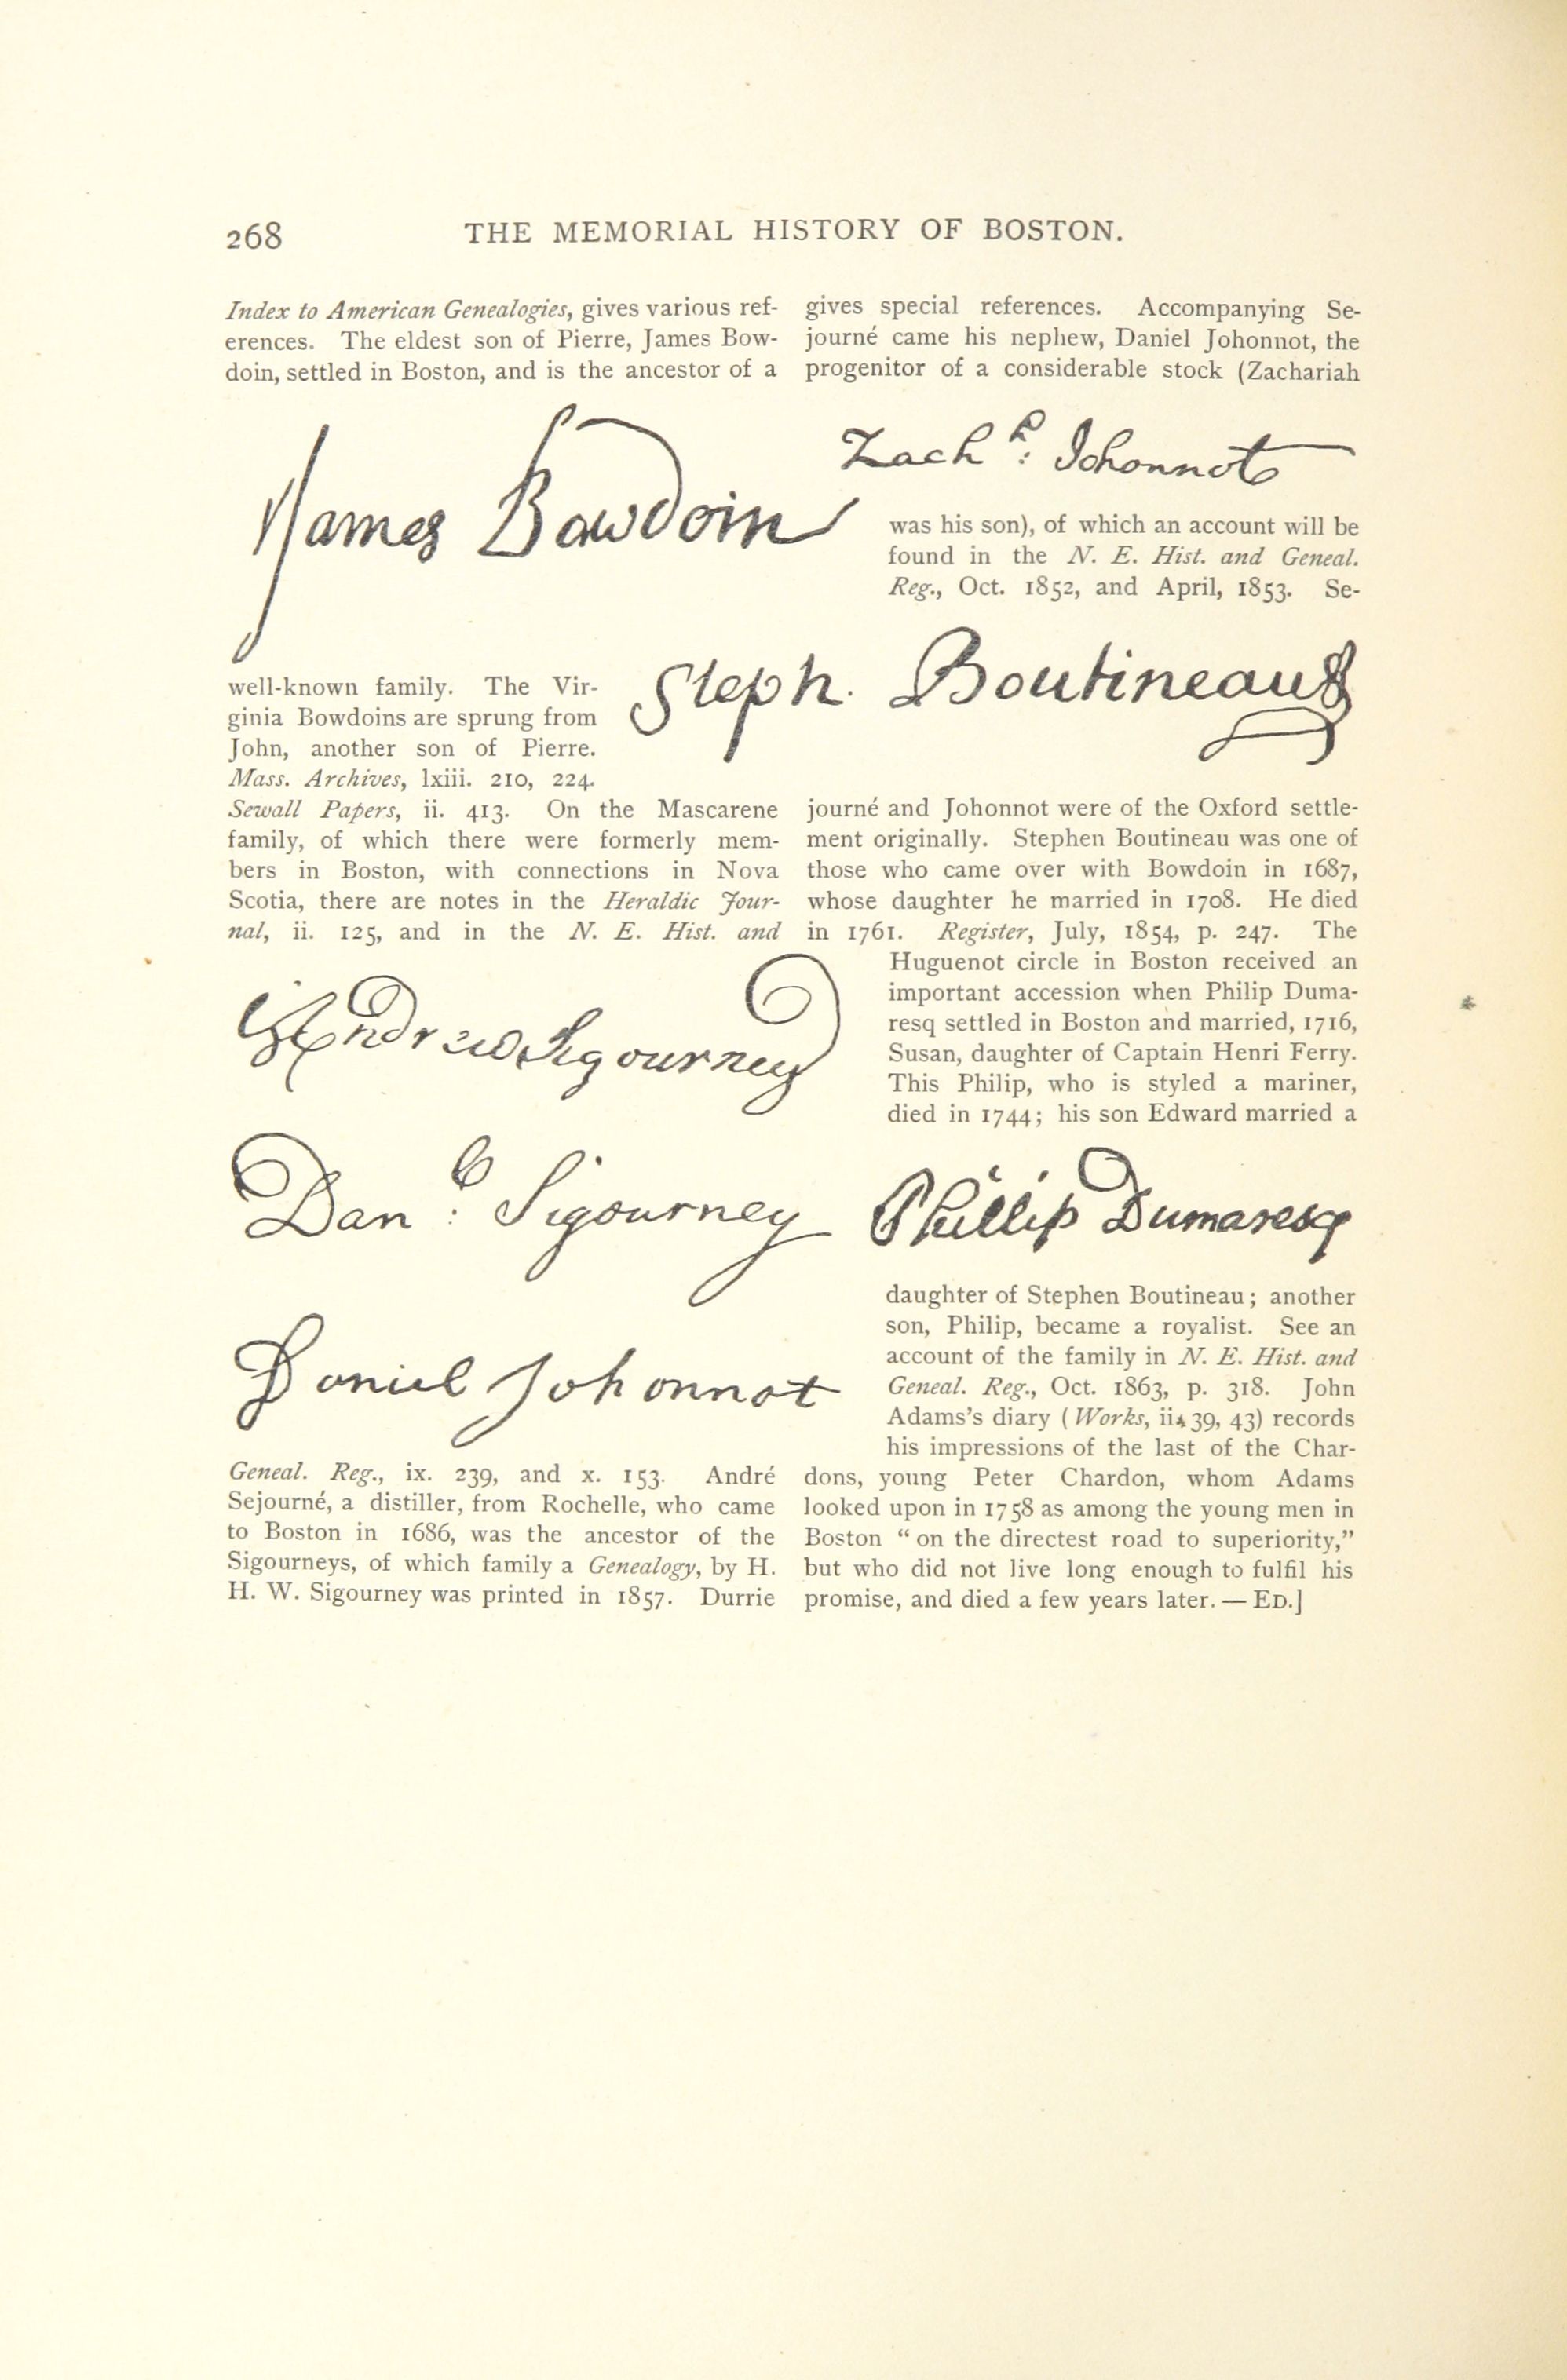 268
THE MEMORIAL HISTORY OF BOSTON.
Index to American Genealogies, gives various ref-
erences. The eldest son of Pierre, James Bow-
doin, settled in Boston, and is the ancestor of a
James Bowdoin
well-known family. The Vir-
ginia Bowdoins are sprung from
John, another son of Pierre.
Mass. Archives, lxiii. 210, 224.
Sewall Papers, ii. 413. On the Mascarene
family, of which there were formerly mem-
bers in Boston, with connections in Nova
Scotia, there are notes in the Heraldic Jour-
nal, ii. 125, and in the N. E. Hist. and
Andrew Sigourney
Danˡ: Sigourney
Daniel Johonnot
Geneal. Reg., ix. 239, and x. 153. André
Sejourné, a distiller, from Rochelle, who came
to Boston in 1686, was the ancestor of the
Sigourneys, of which family a Genealogy, by H.
H. W. Sigourney was printed in 1857. Durrie
gives special references. Accompanying Se-
journé came his nephew, Daniel Johonnot, the
progenitor of a considerable stock (Zachariah
Zachʰ: Johonnot
was his son), of which an account will be
found in the N. E. Hist. and Geneal.
Reg., Oct. 1852, and April, 1853. Se-
Steph. Boutineau
journé and Johonnot were of the Oxford settle-
ment originally. Stephen Boutineau was one of
those who came over with Bowdoin in 1687,
whose daughter he married in 1708. He died
in 1761. Register, July, 1854, p. 247. The
Huguenot circle in Boston received an
important accession when Philip Duma-
resq settled in Boston and married, 1716,
Susan, daughter of Captain Henri Ferry.
This Philip, who is styled a mariner,
died in 1744; his son Edward married a
Phillip Dumaresq
daughter of Stephen Boutineau; another
son, Philip, became a royalist. See an
account of the family in N. E. Hist. and
Geneal. Reg., Oct. 1863, p. 318. John
Adams's diary (Works, ii. 39, 43) records
his impressions of the last of the Char-
dons, young Peter Chardon, whom Adams
looked upon in 1758 as among the young men in
Boston “on the directest road to superiority,”
but who did not live long enough to fulfil his
promise, and died a few years later. — ED.]